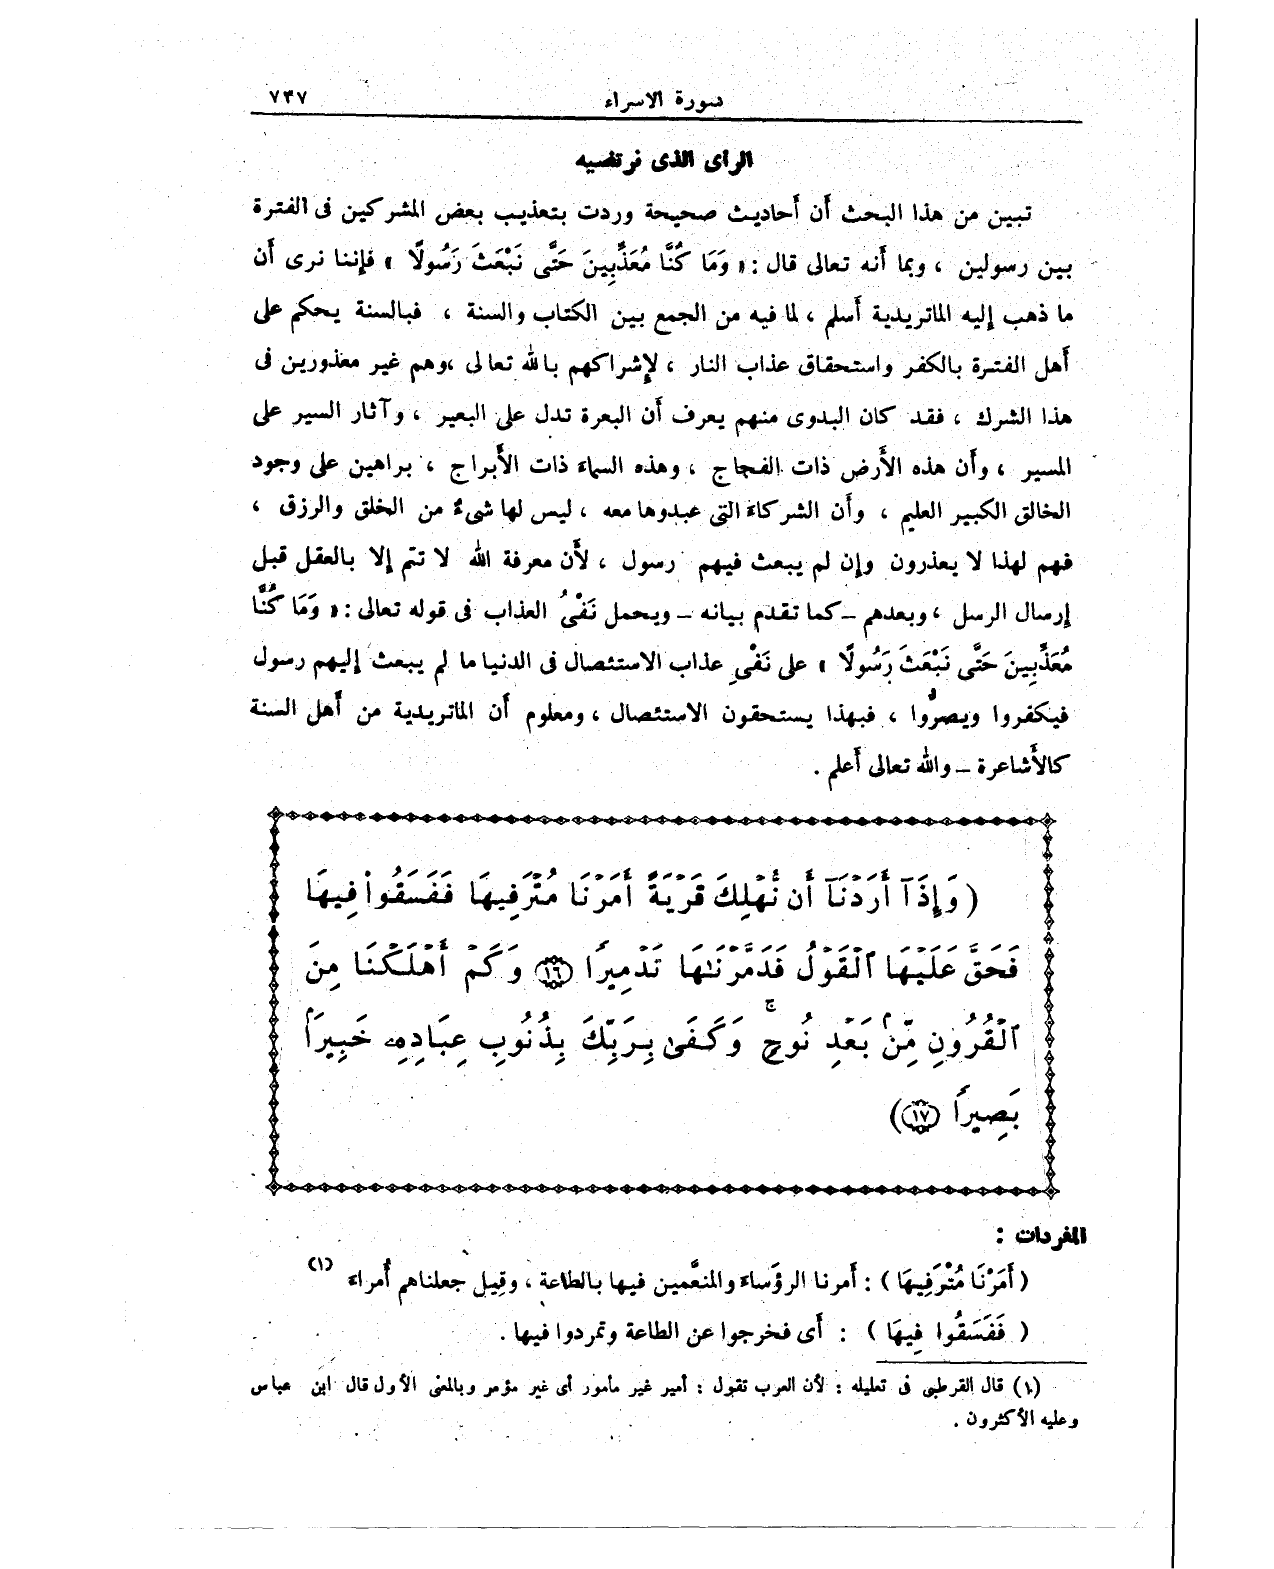 سورة الاسراء ٧٣٧
الرأى الذى نرتضيه
تبين من هذا البحث أن أحاديث صحيحة وردت بتعذيب بعض المشركين فى الفترة
بين رسولين ، وبما أنه تعالى قال : « وَمَا كُنَّا مُعَذِّبِينَ حَتَّى نَبْعَثَ رَسُولًا » فإننا نرى أن
ما ذهب إليه الماتريدية أسلم ، لما فيه من الجمع بين الكتاب والسنة ، فبالسنة يحكم على
أهل الفترة بالكفر واستحقاق عذاب النار ، لإشراكهم بالله تعالى ، وهم غير معذورين فى
هذا الشرك ، فقد كان البدوى منهم يعرف أن البعرة تدل على البعير ، وآثار السير على
المسير ، وأن هذه الأرض ذات الفجاج ، وهذه السماء ذات الأبراج ، براهين على وجود
الخالق الكبير العليم ، وأن الشركاء التى عبدوها معه ، ليس لها شىءٌ من الخلق والرزق ،
فهم لهذا لا يعذرون وإن لم يبعث فيهم رسول ، لأن معرفة الله لا تتم إلا بالعقل قبل
إرسال الرسل ، وبعدهم ـ كما تقدم بيانه ـ ويحمل نَفْىُ العذاب فى قوله تعالى : « وَمَا كُنَّا
مُعَذِّبِينَ حَتَّى نَبْعَثَ رَسُولًا » على نَفْىِ عذاب الاستئصال فى الدنيا ما لم يبعث إليهم رسول
فيكفروا ويصرُّوا ، فبهذا يستحقون الاستئصال ، ومعلوم أن الماتريدية من أهل السنة
كالأشاعرة ـ والله تعالى أعلم .
( وَإِذَآ أَرَدْنَآ أَن نُّهْلِكَ قَرْيَةً أَمَرْنَا مُتْرَفِيهَا فَفَسَقُوا۟ فِيهَا
فَحَقَّ عَلَيْهَا ٱلْقَوْلُ فَدَمَّرْنَـٰهَا تَدْمِيرًا ﴿١٦﴾ وَكَمْ أَهْلَكْنَا مِنَ
ٱلْقُرُونِ مِنۢ بَعْدِ نُوحٍ ۚ وَكَفَىٰ بِرَبِّكَ بِذُنُوبِ عِبَادِهِۦ خَبِيرَۢا
بَصِيرًا ﴿١٧﴾ )
المفردات :
( أَمَرْنَا مُتْرَفِيهَا ) : أمرنا الرؤَساء والمنعَّمين فيها بالطاعة ، وقيل جعلناهم أُمراء (١)
( فَفَسَقُوا فِيهَا ) : أى فخرجوا عن الطاعة وتمردوا فيها .
(١) قال القرطبى فى تعليله : لأن العرب تقول : أمير غير مأمور أى غير مؤمر وبالمعنى الأول قال ابن عباس
وعليه الأكثرون .